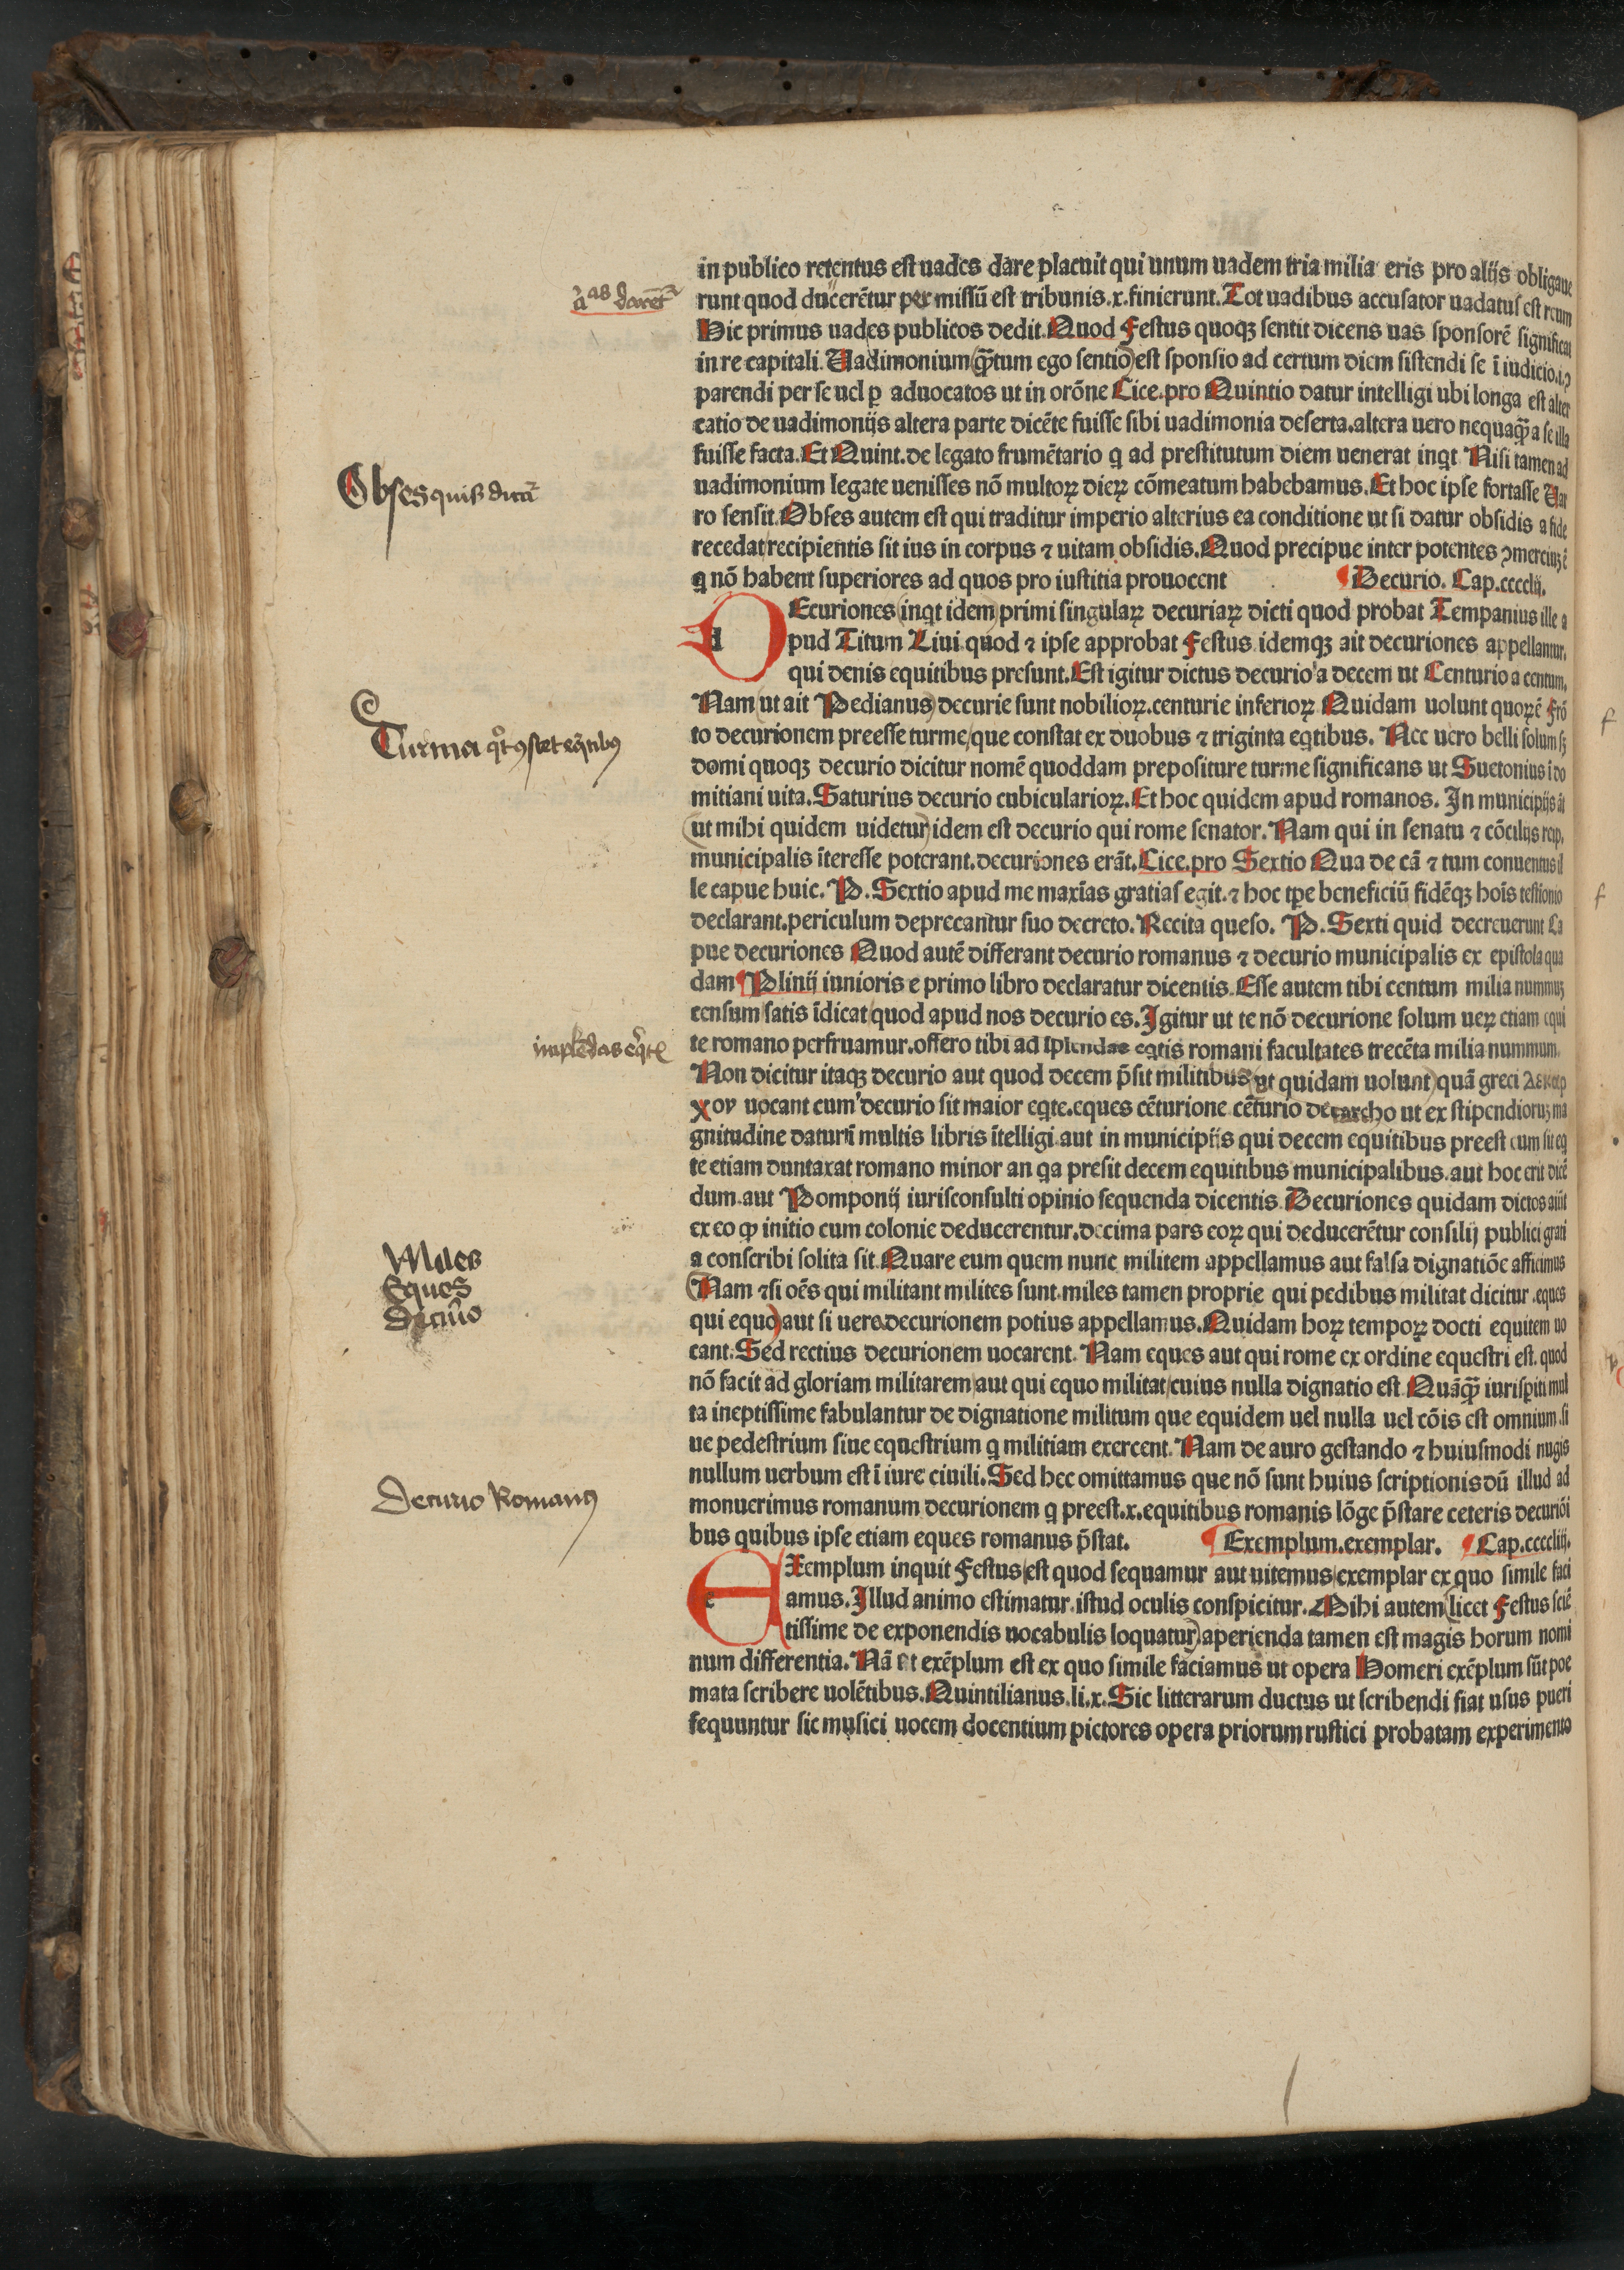 in publico retentus est uades dare placuit qui unum uadem tria milia eris pro alijs obligaue
runt quod ducerētur permissū est tribunis.x.finierunt.Tot uadibus accusator uadatus est reum
Hic primus uades publicos dedit.Quod Festus quoqꝫ sentit dicens uas sponsorē significat
in re capitali.Uadimonium (qꝫtum ego sentio) est sponsio ad certum diem sistendi se ī iudicio.i.
parendi per se uel ꝑ aduocatos ut in orōne Cice.pro Quintio datur intelligi ubi longa est alter
catio de uadimonijs altera parte dicēte fuisse sibi uadimonia deserta.altera uero nequaqꝫ a se illa
fuisse facta.Et Quint.de legato frumētario q ad prestitutum diem uenerat inqt Nisi tamen ad
Obses quis dicitur
uadimonium legate uenisses nō multoꝝ dieꝝ cōmeatum habebamus.Et hoc ipse fortasse Uar
ro sensit.Obses autem est qui traditur imperio alterius ea conditione ut si datur obsidis a fide
recedat recipientis sit ius in corpus ⁊ uitam obsidis.Quod precipue inter potentes
q nō habent superiores ad quos pro iustitia prouocent ¶Decurio. Cap.cccclij.
dEcuriones (inqt idem) primi singulaꝝ decuriaꝝ dicti quod probat Tempanius ille a
pud Titum Liui quod ⁊ ipse approbat Festus idemqꝫ ait decuriones appellantur.
qui denis equitibus presunt.Est igitur dictus decurio a decem ut Centurio a centum.
Nam (ut ait Pedianus) decurie sunt nobilioꝝ.centurie inferioꝝ Quidam uolunt quoꝝ ē Frō
Turma
to decurionem preesse turme que constat ex duobus ⁊ triginta eqtibus. Nec uero belli solum sꝫ
domi quoqꝫ decurio dicitur nomē quoddam prepositure turme significans ut Suetonius ī do
mitiani uita.Saturius decurio cubicularioꝝ.Et hoc quidem apud romanos. In municipijs
(ut mihi quidem uidetur) idem est decurio qui rome senator.Nam qui in senatu ⁊ cōcilijs reip.
municipalis īteresse poterant.decuriones erāt.Cice.pro Sextio Qua de cā ⁊ tum conuentus il
le capue huic. P.Sextio apud me maxīas gratias egit.⁊ hoc tpe beneficiū fidēqꝫ hoīs
declarant.periculum deprecantur suo decreto.Recita queso. P.Sexti quid decreuerunt Ca
pue decuriones Quod autē differant decurio romanus ⁊ decurio municipalis ex epistola qua
dam Plinij iunioris e primo libro declaratur dicentis.Esse autem tibi centum milia nummuꝫ
censum satis īdicat quod apud nos decurio es.Igitur ut te nō decurione solum ueꝝ etiam equi
te romano perfruamur.offero tibi ad īplendas eqtis romani facultates trecēta milia nummum.
Non dicitur itaqꝫ decurio aut quod decem p̄sit militibus (ut quidam uolunt) quā greci
χον uocant cum decurio sit maior eqte.eques cēturione cēturio decarcho ut ex stipendioruꝫ ma
gnitudine daturī multis libris ītelligi aut in municipijs qui decem equitibus preest cum sit eq
te etiam duntaxat romano minor an qa presit decem equitibus municipalibus.aut hoc erit dicē
dum.aut Pomponij iurisconsulti opinio sequenda dicentis.Decuriones quidam dictos aiūt
ex eo ꝙ initio cum colonie deducerentur.decima pars eoꝝ qui deducerētur consilij publici grati
Miles
Eques
Decurio
a conscribi solita sit.Quare eum quem nunc militem appellamus aut falsa dignatiōe afficimus
(Nam ⁊si oēs qui militant milites sunt.miles tamen proprie qui pedibus militat dicitur.eques
qui equo) aut si uero decurionem potius appellamus.Quidam hoꝝ tempoꝝ docti equitem uo
cant.Sed rectius decurionem uocarent.Nam eques aut qui rome ex ordine equestri est.quod
nō facit ad gloriam militarem aut qui equo militat cuius nulla dignatio est.Quāqꝫ iurispiti mul
ta ineptissime fabulantur de dignatione militum que equidem uel nulla uel cōis est omnium.si
ue pedestrium siue equestrium q militiam exercent.Nam de auro gestando ⁊ huiusmodi nugis
Decurio Romanus
nullum uerbum est ī iure ciuili.Sed hec omittamus que nō sunt huius scriptionis dū illud ad
monuerimus romanum decurionem q preest.x.equitibus romanis lōge p̄stare ceteris decuriōi
bus quibus ipse etiam eques romanus p̄stat. ¶Exemplum.exemplar. ¶Cap.ccccliij.
eXemplum inquit Festus est quod sequamur aut uitemus exemplar ex quo simile faci
amus.Illud animo estimatur.istud oculis conspicitur.Mihi autem (licet Festus sciē
tissime de exponendis uocabulis loquatur) aperienda tamen est magis horum nomi
num differentia.Nā et exēplum est ex quo simile faciamus ut opera Homeri exēplum sūt poe
mata scribere uolētibus.Quintilianus.li.x.Sic litterarum ductus ut scribendi fiat usus pueri
sequuntur sic musici uocem docentium pictores opera priorum rustici probatam experimento